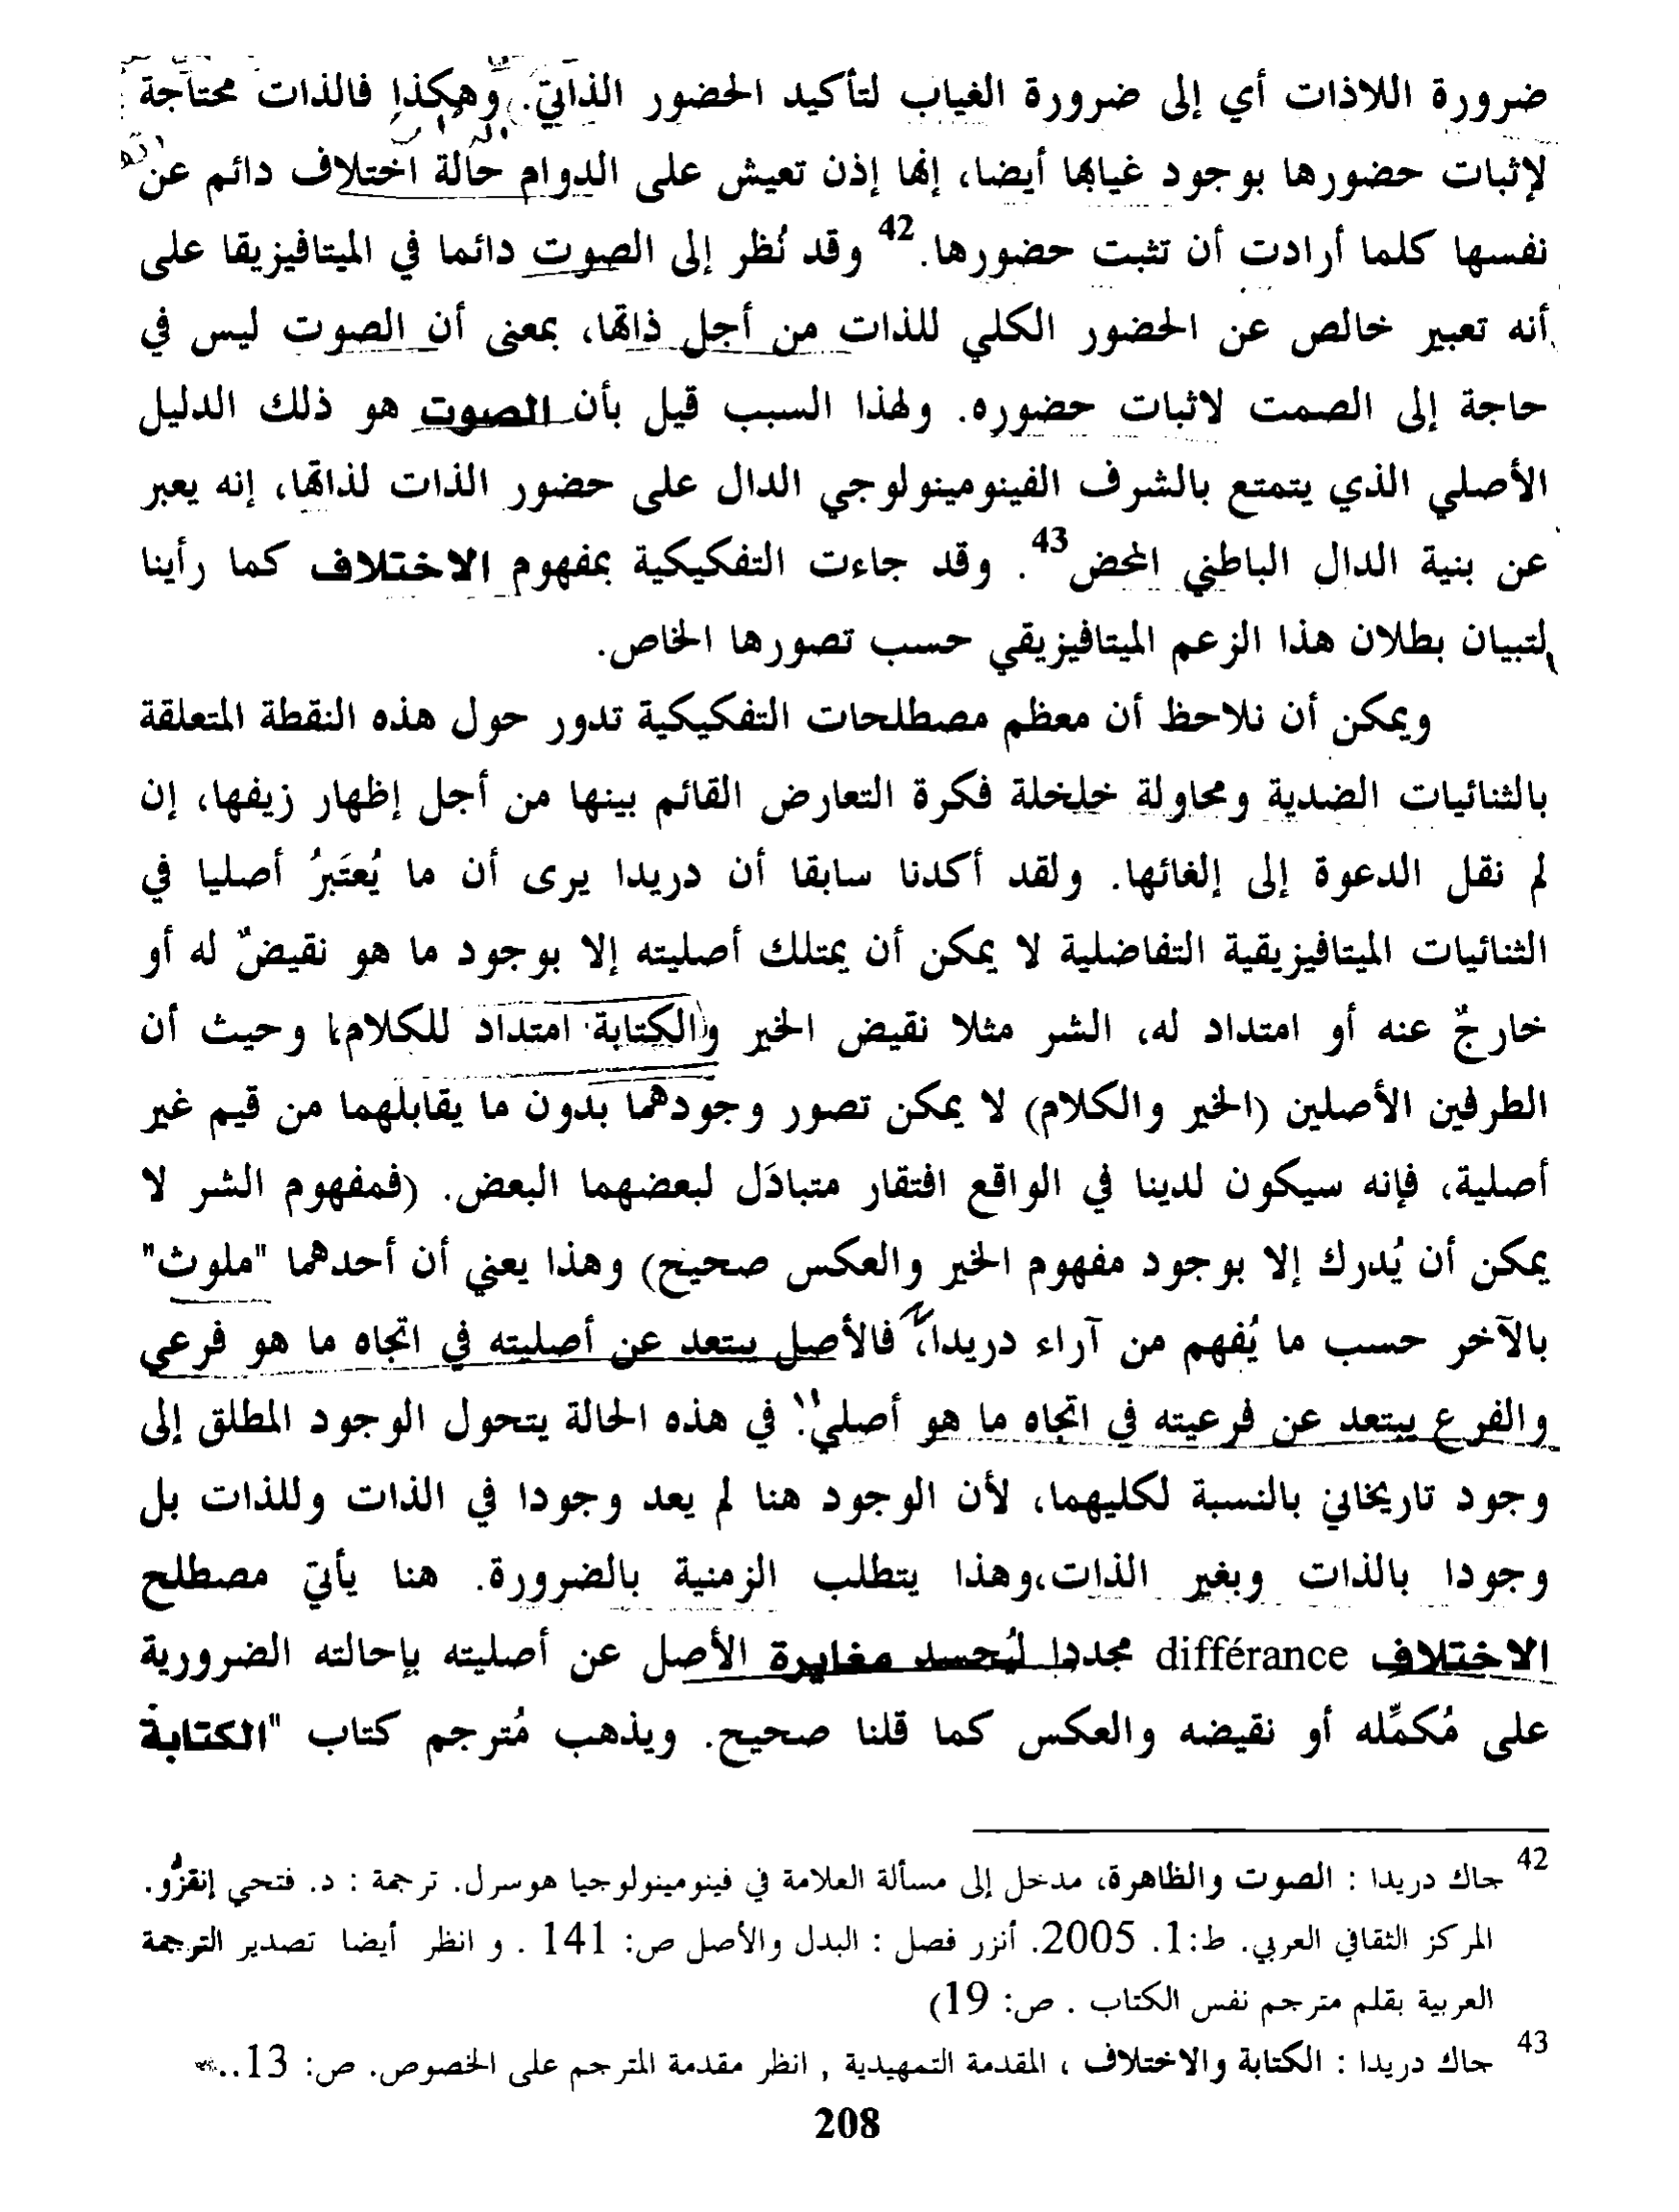 ضرورة اللاذات أي إلى ضرورة الغياب لتأكيد الحضور الذاتي. وهكذا فالذات محتاجة
لإثبات حضورها بوجود غيابها أيضا، إنها إذن تعيش على الدوام حالة اختلاف دائم عن
نفسها كلما أرادت أن تثبت حضورها.42 وقد نُظر إلى الصوت دائما في الميتافيزيقا على
أنه تعبير خالص عن الحضور الكلي للذات من أجل ذاتها، بمعنى أن الصوت ليس في
حاجة إلى الصمت لاثبات حضوره. ولهذا السبب قيل بأن الصوت هو ذلك الدليل
الأصلي الذي يتمتع بالشرف الفينومينولوجي الدال على حضور الذات لذاتها، إنه يعبر
عن بنية الدال الباطني المحض43. وقد جاءت التفكيكية بمفهوم الاختلاف كما رأينا
لتبيان بطلان هذا الزعم الميتافيزيقي حسب تصورها الخاص.
ويمكن أن نلاحظ أن معظم مصطلحات التفكيكية تدور حول هذه النقطة المتعلقة
بالثنائيات الضدية ومحاولة خلخلة فكرة التعارض القائم بينها من أجل إظهار زيفها، إن
لم نقل الدعوة إلى إلغائها. ولقد أكدنا سابقا أن دريدا يرى أن ما يُعتَبرُ أصليا في
الثنائيات الميتافيزيقية التفاضلية لا يمكن أن يمتلك أصليته إلا بوجود ما هو نقيضٌ له أو
خارجٌ عنه أو امتداد له، الشر مثلا نقيض الخير والكتابة امتداد للكلام، وحيث أن
الطرفين الأصلين (الخير والكلام) لا يمكن تصور وجودهما بدون ما يقابلهما من قيم غير
أصلية، فإنه سيكون لدينا في الواقع افتقار متبادَل لبعضهما البعض. (فمفهوم الشر لا
يمكن أن يُدرك إلا بوجود مفهوم الخير والعكس صحيح) وهذا يعني أن أحدهما "ملوث"
بالآخر حسب ما يُفهم من آراء دريدا، فالأصل يبتعد عن أصليته في اتجاه ما هو فرعي
والفرع يبتعد عن فرعيته في اتجاه ما هو أصلي. في هذه الحالة يتحول الوجود المطلق إلى
وجود تاريخاني بالنسبة لكليهما، لأن الوجود هنا لم يعد وجودا في الذات وللذات بل
وجودا بالذات وبغير الذات،وهذا يتطلب الزمنية بالضرورة. هنا يأتي مصطلح
الاختلاف différance مجددا ليُجسد مغايرة الأصل عن أصليته بإحالته الضرورية
على مُكمِّله أو نقيضه والعكس كما قلنا صحيح. ويذهب مُترجم كتاب "الكتابة
42 جاك دريدا : الصوت والظاهرة، مدخل إلى مسألة العلامة في فينومينولوجيا هوسرل. ترجمة : د. فتحي إنقزُّو.
المركز الثقافي العربي. ط:1. 2005. أنزر فصل : البدل والأصل ص: 141 . و انظر أيضا تصدير الترجمة
العربية بقلم مترجم نفس الكتاب . ص: 19)
43 جاك دريدا : الكتابة والاختلاف ، المقدمة التمهيدية , انظر مقدمة المترجم على الخصوص. ص: 13..
208